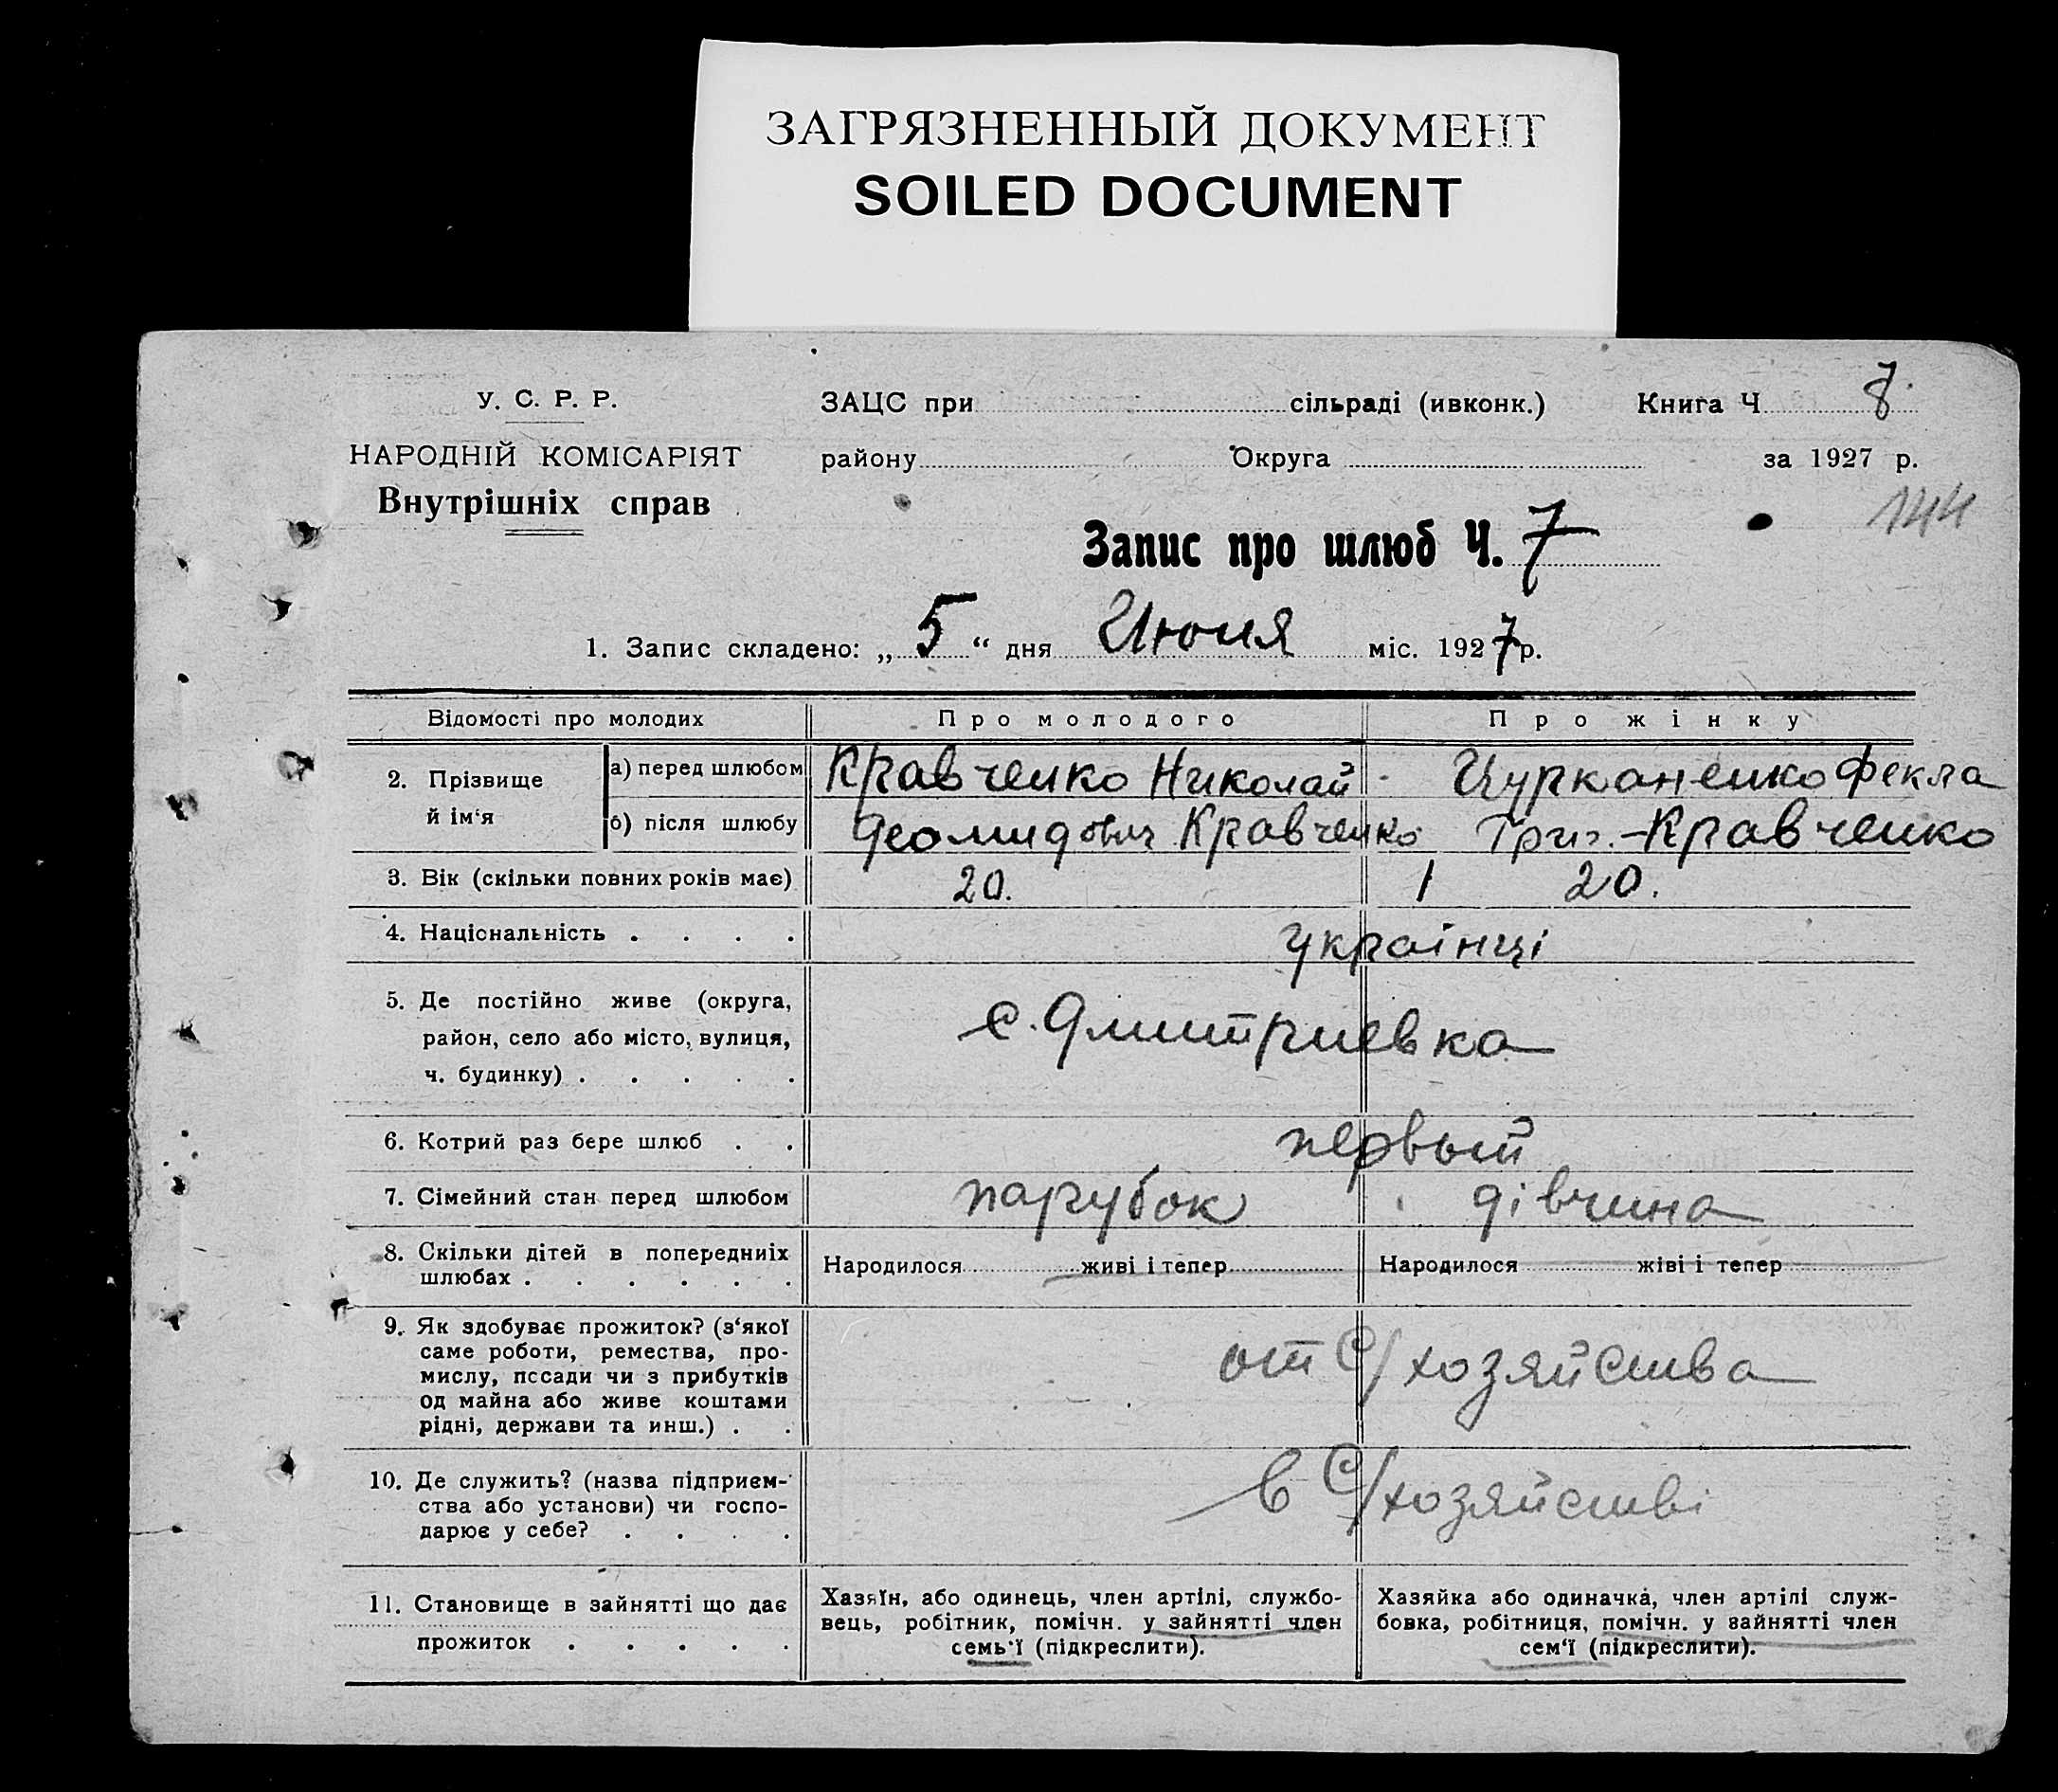 ЗАГРЯЗНЕННЫЙ ДОКУМЕНТ
SOILED DOCUMENT
У. С. Р. Р.
НАРОДНІЙ КОМІСАРІЯТ
Внутрішніх справ
ЗАЦС при сільраді (ивконк.) Книга Ч
району Округа за 1927 р.
144
Запис про шлюб Ч. 7
1. Запис складено: „ 5 “ дня Июня міс. 1927 р.
Відомості про молодих Про молодого Про жінку
2. Прізвище й ім‘я
а) перед шлюбом Кравченко Николай Цурканенко Фекла
б) після шлюбу Деомидович Кравченко Григ.-Кравченко
3. Вік (скільки повних років має) 20. 20.
4. Національність . . . . українці
5. Де постійно живе (округа,
район, село або місто, вулиця,
ч. будинку) . . . . .
с. Дмитриевка
6. Котрий раз бере шлюб . . первый
7. Сімейний стан перед шлюбом парубок дівчина
8. Скільки дітей в попередниіх
шлюбах . . . . . .
Народилося живі і тепер Народилося жіві і тепер
9. Як здобуває прожиток? (з‘якої
саме роботи, ремества, про-
мислу, посади чи з прибутків
од майна або живе коштами
рідні, держави та инш.) . .
от С/хозяйства
10. Де служить? (назва підприєм-
ства або установи) чи госпо-
дарює у себе? . . . .
в С/хозяйстві
11. Становище в зайнятті що дає
прожиток . . . . .
Хазяїн, або одинець, член артілі, службо-
вець, робітник, помічн. у зайнятті член
семь‘ї (підкреслити).
Хазяйка або одиначка, член артілі служ-
бовка, робітниця, помічн. у зайнятті член
сем‘ї (підкреслити).